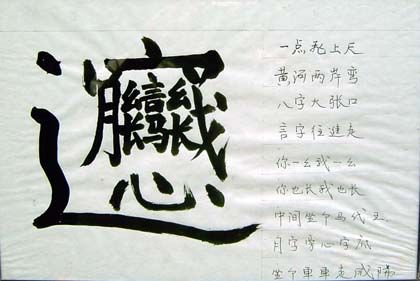 𰻞
一点飞上天
黄河两岸弯
八字大张口
言字往進走
你一幺我一幺
你也长我也长
中间坐个马代王
月字旁心字底
坐个車車走咸阳